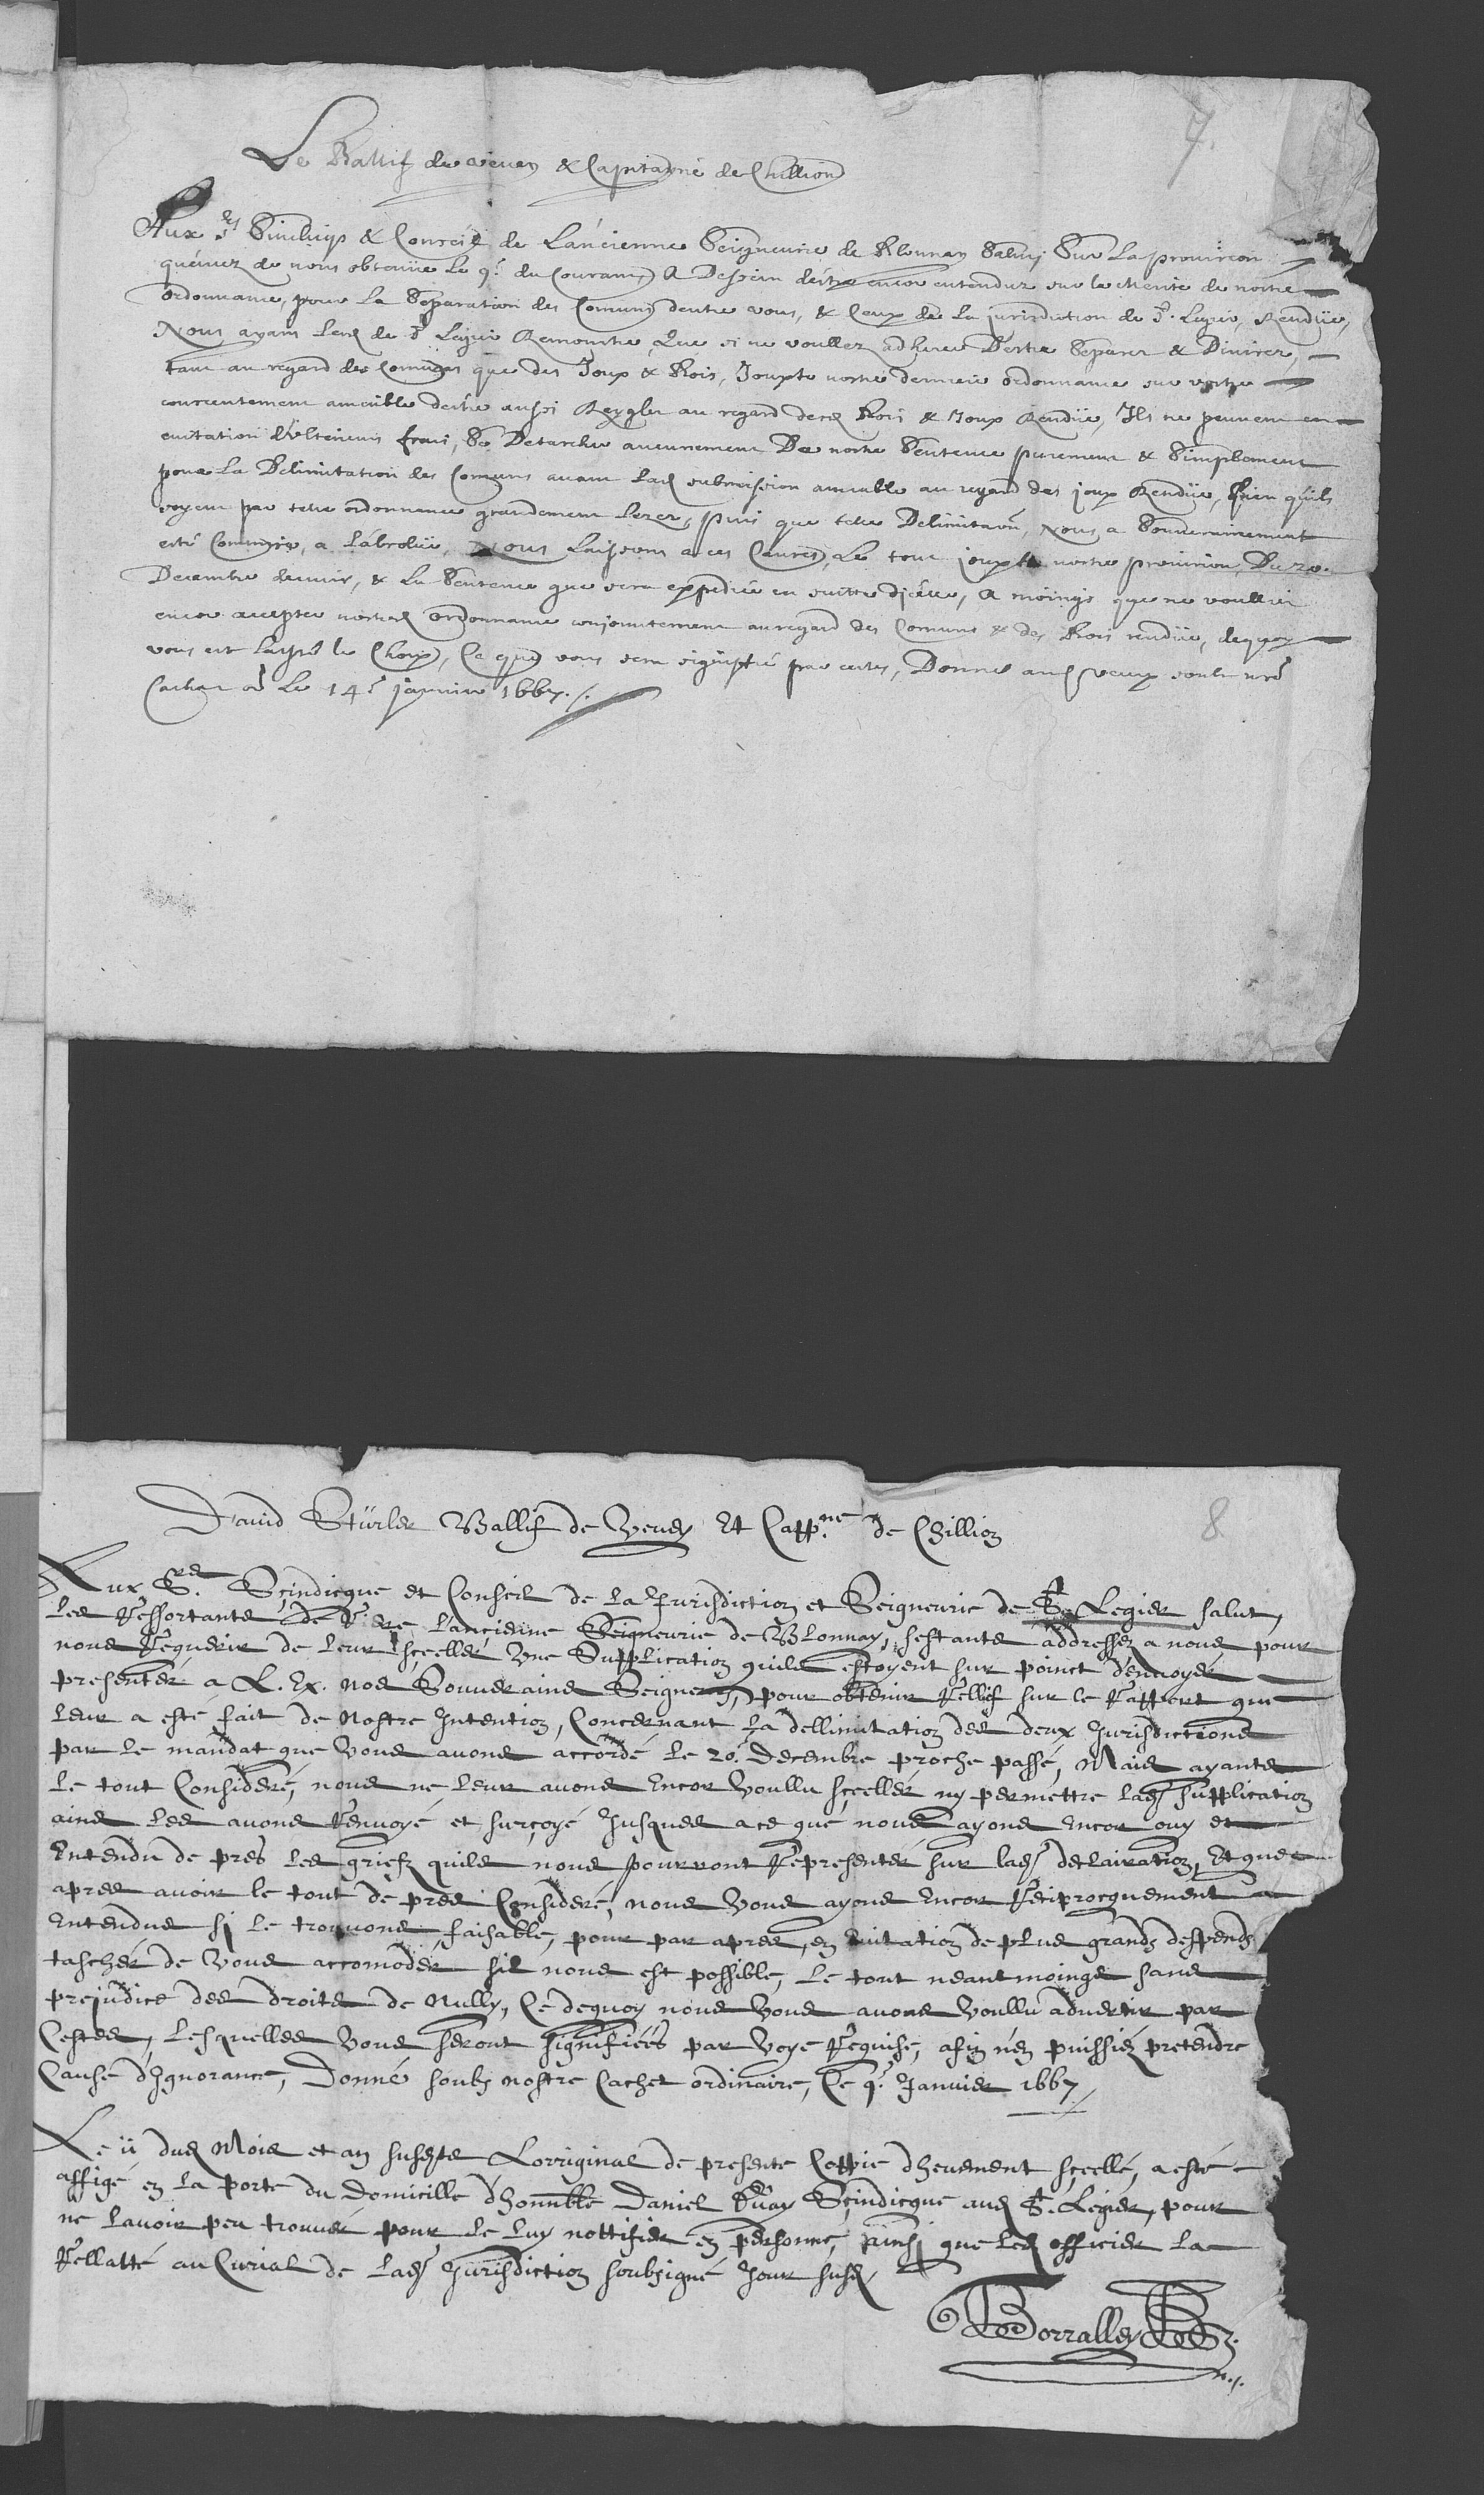 7.
Le Ballif de Vevey & Capitayne de Chillion
Aux Srs Sindicqs & Conseil de Láncienne Seigneurie de Blonnay Salut, Sur La provision
quéuvez de nous obtenüe Le 9e. du Courant, A Dessein déstre encor entendus sur le merite de nostre
ordonnance, pour La Separation des Comuns dentre vous, & Ceux de La jurisdiction de St. Legier, Rendüe,
Nous ayans Ceux de St Legier Remonstré, Que si ne voullez adherer D'estre Separez & Divisez,
tant au regard des Comuns que des Joux & Bois, Jouxte nostre derniere ordonnance sur vostre
consentement amiable déstre aussi Reyglez au regard desd Bois & Joux Rendüe, Ils ne peuvent en
evitation d'Ulterieurs frais, Se Detascher aucunement De nostre Sentence purement & Simplement
pour La Delimitation des Comuns avant Lad submission amiable au regard des joux Rendüe, Bien quils
soyent par telle ordonnance grandement Lezez, puis que telle Delimitaõn, Nous a Souverainement
esté Commise, a Labsolüe, Nous Laissons a ces Causes, Le tout jouxte nostre provision, Du 20.
Decembre dernier, & La Sentence que sera expediée en suitte d'jcelle, A moings que ne voulliez
encor accepter nostred ordonnance conjointement au regard des Comuns & des Bois rendüe, dequoy
vous est Laissé le Choix, Ce que vous sera signiffié par cestes, Donné aud Vevey soubs nrẽ
Cachet orẽ Le 14e janvier 1667./.
8
David Stürler Ballif de Vevey Et Cappne. de Chillion
Aux Srs. Scindicque et Conseil de La Jurisdiction et Seigneurie de St. Legier salut,
Les Ressortants de Rière L'ancienne Seigneurie de Blonnay, sestants addressez a nous pour
nous Requerir de leur sçeller Une Supplication quils estoyent sur poinct d'envoyer
presenter a L. Ex. nos Souverains Seigneurs, pour obtenir Rellief sur le Rapport que
Leur a esté fait de Nostre Intention, Concernant La dellimitation des deux Jurisdictions
par le mandat que Vous avons accordé le 20. Decembre proche passé, Mais ayants
Le tout Consideré, nous ne leur avons Encor Voullu sçeller ny permettre lad Supplication
ains Les avons Renvoyé et surçoyé Jusques a ce que nous ayons Encor ouy et
Entendu de prés les griefz quils nous pourront Representer sur lad declairation, Et que
apres avoir le tout de pres Consideré, nous Vous ayons Encor Reciprocquement
Entendus si le trouvons faisable, pour par apres, en Evitation de plus grands despends
tascher de Vous accomoder sil nous est possible, Le tout neantmoings sans
prejudice des droits de Nully, Ce dequoy nous Vous avons Voullu advertir par
Cestes, Lesquelles Vous seront signifiées par Voye Requise, afin n'en puissiez pretendre
Cause d'Ignorance, Donné soubz nostre Cachet ordinaire, Ce 9e. Janvier 1667,
Le ii dud Mois et an susdits Lorriginal de presente Coppie dheuement sçellé, a esté
affigé en la porte du domicille d'honnble Daniel Scindicque aud St. Legier, pour
ne lavoir peu trouver pour le luy nottifier en personne, ainsi que led officier la
Rellatté au Curial de lad Jurisdiction soubsigné Jour susd,
Borralley